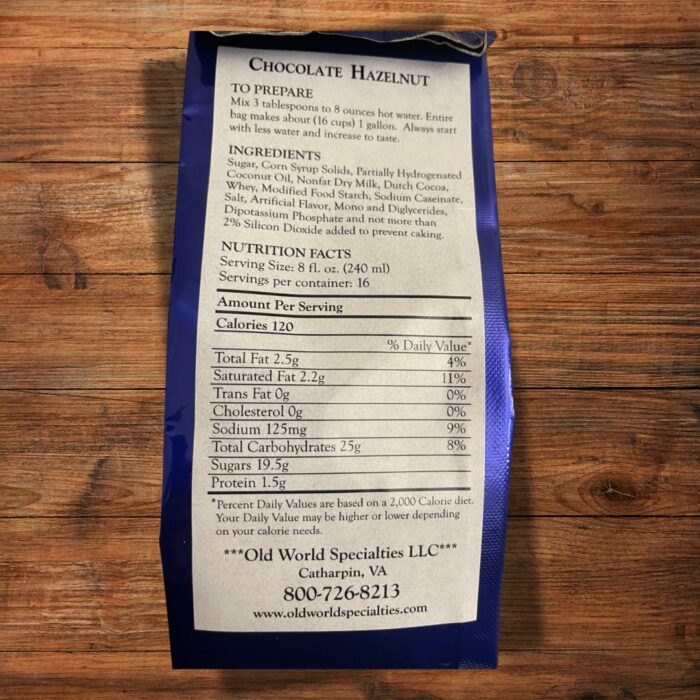 CHOCOLATE HAZELNUT
TO PREPARE
Mix 3 tablespoons to 8 ounces hot water. Entire
bag makes about (16 cups) 1 gallon. Always start
with less water and increase to taste.
INGREDIENTS
Sugar, Corn Syrup Solids, Partially Hydrogenated
Coconut Oil, Nonfat Dry Milk, Dutch Cocoa,
Whey, Modified Food Starch, Sodium Caseinate,
Salt, Artificial Flavor, Mono and Diglycerides,
Dipotassium Phosphate and not more than
2% Silicon Dioxide added to prevent caking.
NUTRITION FACTS
Serving Size: 8 fl. oz. (240 ml)
Servings per container: 16
Amount Per Serving
Calories 120
% Daily Value*
Total Fat 2.5g 4%
Saturated Fat 2.2g 11%
Trans Fat 0g 0%
Cholesterol 0g 0%
Sodium 125mg 9%
Total Carbohydrates 25g 8%
Sugars 19.5g
Protein 1.5g
*Percent Daily Values are based on a 2,000 Calorie diet.
Your Daily Value may be higher or lower depending
on your calorie needs.
***Old World Specialties LLC***
Catharpin, VA
800-726-8213
www.oldworldspecialties.com